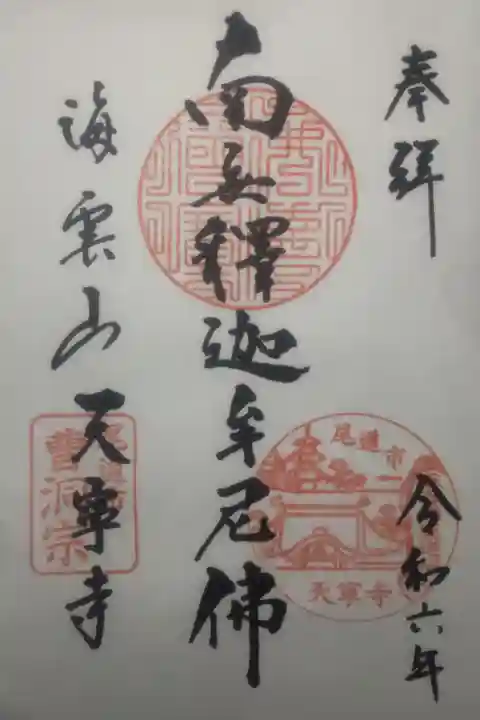 奉拝
令和六年
南無釋迦牟尼佛
海雲山天寧寺
尾道市
天寧寺
曹洞宗